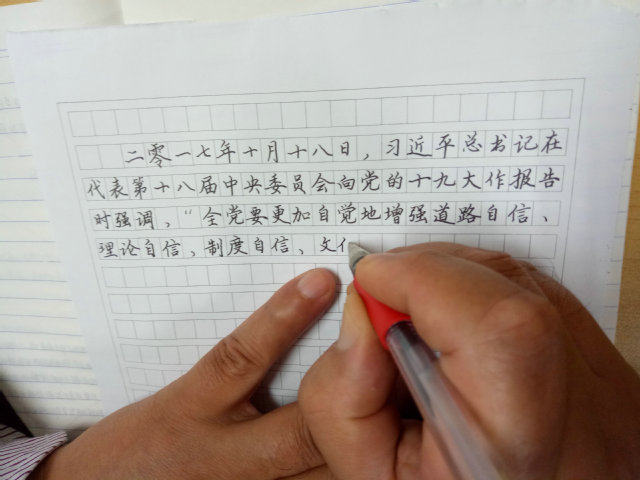 二零一七年十月十八日，习近平总书记在
代表第十八届中央委员会向党的十九大作报告
时强调，“全党要更加自觉地增强道路自信、
理论自信，制度自信、文